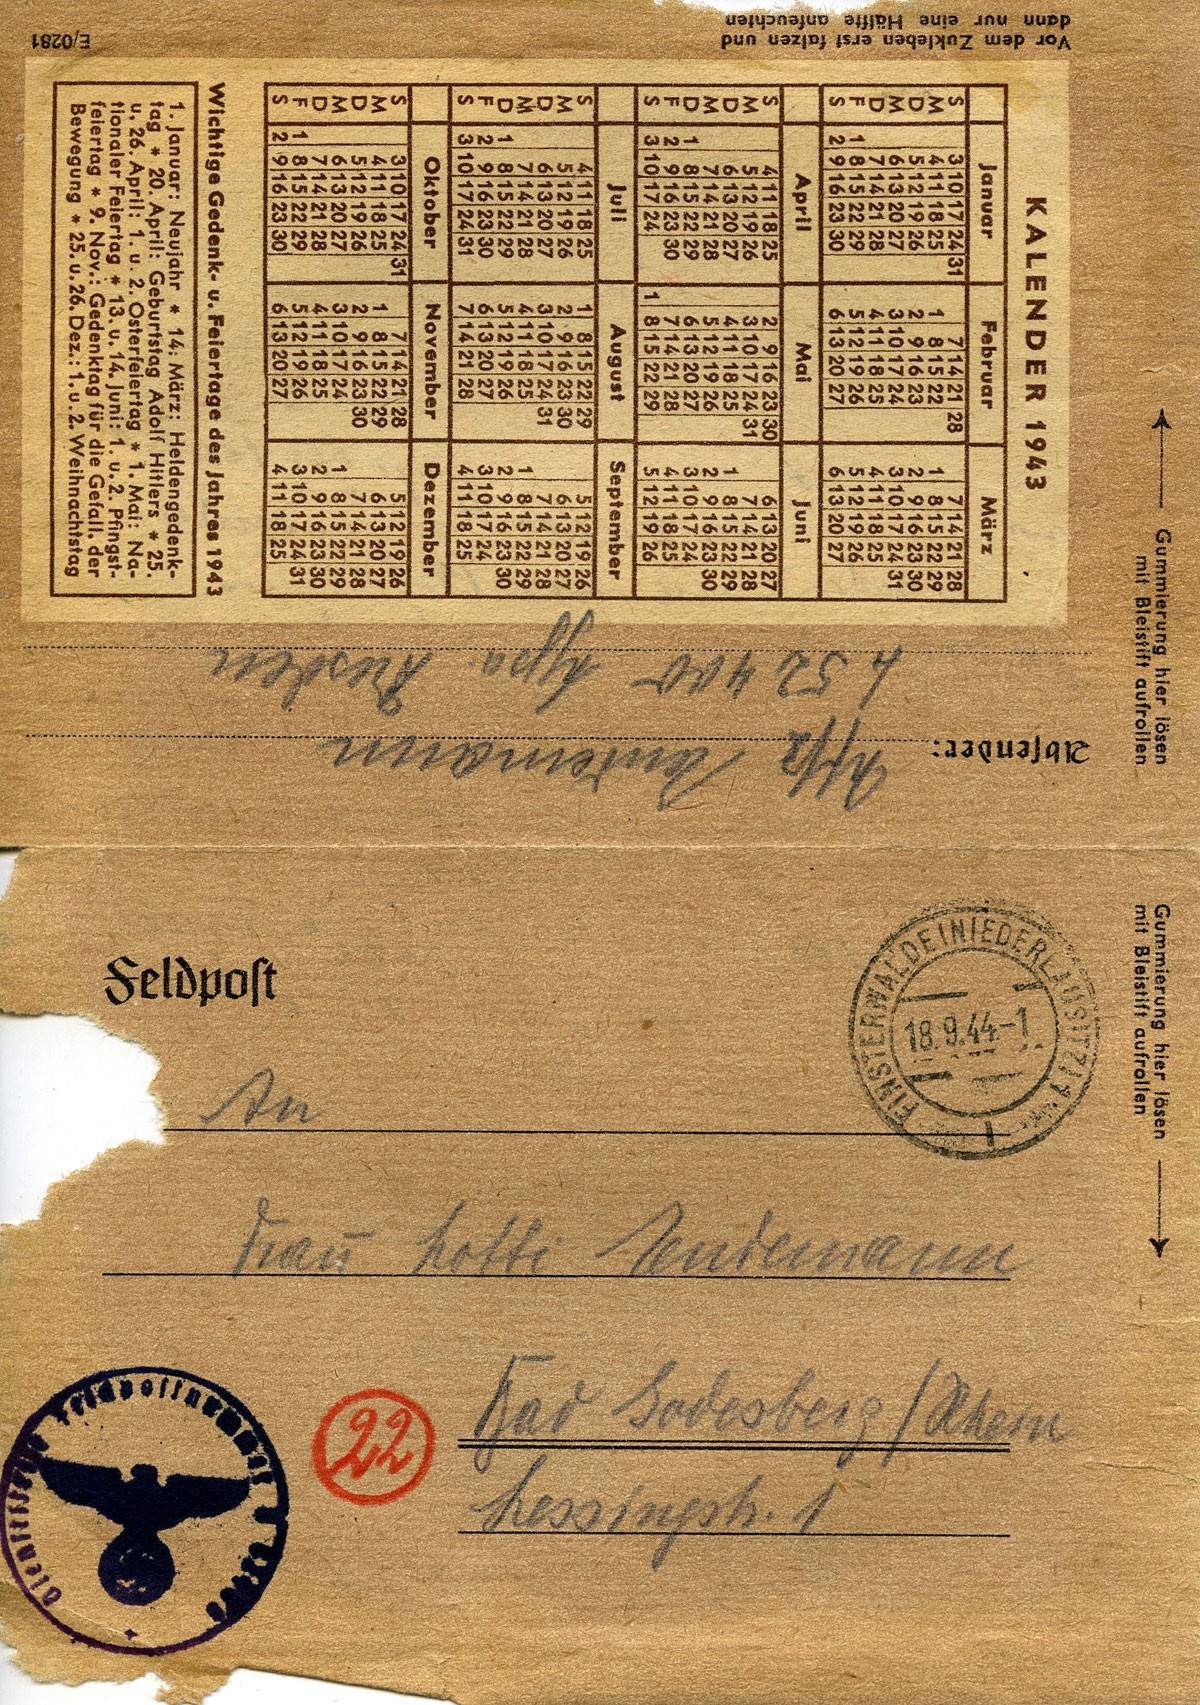 Vor dem Zukleben erst falzen und
dann nur eine Hälfte anfeuchten
E/0281
KALENDER 1943
Januar Februar März
S 3 10 17 24 31 7 14 21 28 7 14 21 28
M 4 11 18 25 1 8 15 22 1 8 15 22 29
D 5 12 19 26 2 9 16 23 2 9 16 23 30
M 6 13 20 27 3 10 17 24 3 10 17 24 31
D 7 14 21 28 4 11 18 25 4 11 18 25
F 1 8 15 22 29 5 12 19 26 5 12 19 26
S 2 9 16 23 30 6 13 20 27 6 13 20 27
April Mai Juni
S 4 11 18 25 2 9 16 23 30 6 13 20 27
M 5 12 19 26 3 10 17 24 31 7 14 21 28
D 6 13 20 27 4 11 18 25 1 8 15 22 29
M 7 14 21 28 5 12 19 26 2 9 16 23 30
D 1 8 15 22 29 6 13 20 27 3 10 17 24
F 2 9 16 23 30 7 14 21 28 4 11 18 25
S 3 10 17 24 1 8 15 22 29 5 12 19 26
Juli August September
S 4 11 18 25 1 8 15 22 29 5 12 19 26
M 5 12 19 26 2 9 16 23 30 6 13 20 27
D 6 13 20 27 3 10 17 24 31 7 14 21 28
M 7 14 21 28 4 11 18 25 1 8 15 22 29
D 1 8 15 22 29 5 12 19 26 2 9 16 23 30
F 2 9 16 23 30 6 13 20 27 3 10 17 24
S 3 10 17 24 31 7 14 21 28 4 11 18 25
Oktober November Dezember
S 3 10 17 24 31 7 14 21 28 5 12 19 26
M 4 11 18 25 1 8 15 22 29 6 13 20 27
D 5 12 19 26 2 9 16 23 30 7 14 21 28
M 6 13 20 27 3 10 17 24 1 8 15 22 29
D 7 14 21 28 4 11 18 25 2 9 16 23 30
F 1 8 15 22 29 5 12 19 26 3 10 17 24 31
S 2 9 16 23 30 6 13 20 27 4 11 18 25
Wichtige Gedenk- u. Feiertage des Jahres 1943
1. Januar: Neujahr * 14. März: Heldengedenk-
tag * 20. April: Geburtstag Adolf Hitlers * 25.
u. 26. April: 1. u. 2. Osterfeiertag * 1. Mai: Na-
tionaler Feiertag * 13. u. 14. Juni: 1. u. 2. Pfingst-
feiertag * 9. Nov.: Gedenktag für die Gefall. der
Bewegung * 25. u. 26. Dez.: 1. u. 2. Weihnachtstag
Gummierung hier lösen
mit Bleistift aufrollen
Absender: Uffz
L 52 400 Lgpa Dresden
Gummierung hier lösen
mit Bleistift aufrollen
Feldpost
FINSTERWALDE (NIEDERLAUSITZ) 1
18.9.44-1
An
Frau Lotti
Bad Godesberg/Rhein
22
Lessingstr. 1
Dienststelle Feldpostnummer